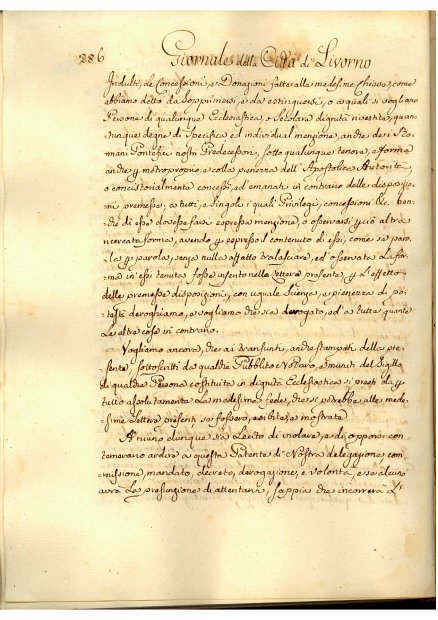 286 Giornale della Città di Livorno
Indulti, Le Concessioni, e Donazioni fatte alle medesime Chiese, come
abbiamo detto da Sopprimersi, e da estinguersi, o a quali si vogliano
Persone di qualunque Ecclesiastica, o Secolare dignità rivestite, quan-
tunque degne di Specifica ed individual menzione, anche dei Ro-
mani Pontefici nostri Predecessori, sotto qualunque tenore, e forma
anche p motroproprio, e colla pienezza dell'Apostolica Autorità,
o concistorialmente concessi, ed emanati in contrario delle disposizio-
ni premesse; a tutti, e Singoli i quali Privilegi, concessioni &c. ben-
che di essi dovesse farsi espressa menzione, o osservarsi p ciò altra
ricercata forma, avendo p espresso il contenuto di essi, come se paro-
la p parola, senza nulla affatto tralasciare, ed osservata La for-
ma in essi tenuta fosse inserito nella Lettera presente, p L'effetto
delle premesse disposizioni, con uguale Scienza, e pienezza di po-
testà deroghiamo, e vogliamo che sia derogato, ed a tutte quante
Le altre cose in contrario.
Vogliamo ancora, che ai transunti, anche stampati della pre-
sente, sottoscritti da qualche Pubblico Notaro, e muniti del Sigillo
di qualche Persona costituita in dignità Ecclesiastica si presti da p
tutto assolutamente La medesima fede, che si presterebbe alle mede-
sime Lettere presenti se fossero, esibite, e mostrate.
A niuno dunque sia Lecito di violare, e di opporsi con
temerario ardire a questa Patente di Nostra delegazione, com-
missione, mandato, decreto, derogazione, e volontà, e se alcuno
avrà La presunzione di attentarvi, sappia che incorrerà L'